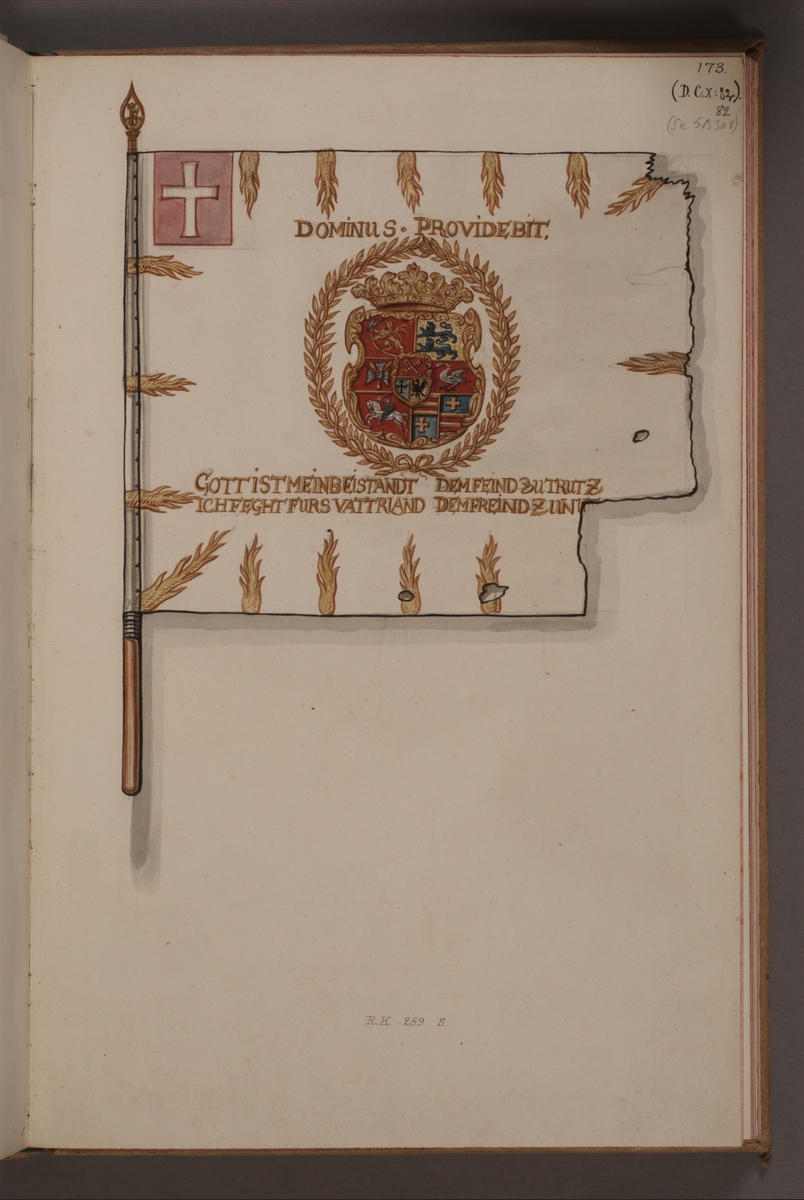 173.
(D. C. X: 82).
82
(Se 5B 308)
DOMINUS · PROVIDEBIT.
GOTT IST MEIN BEISTANDT DEM FEIND ZU TRUTZ
ICH FEGHT FURS VATTRLAND DEM FREIND ZUNU
R.K. 259 S.